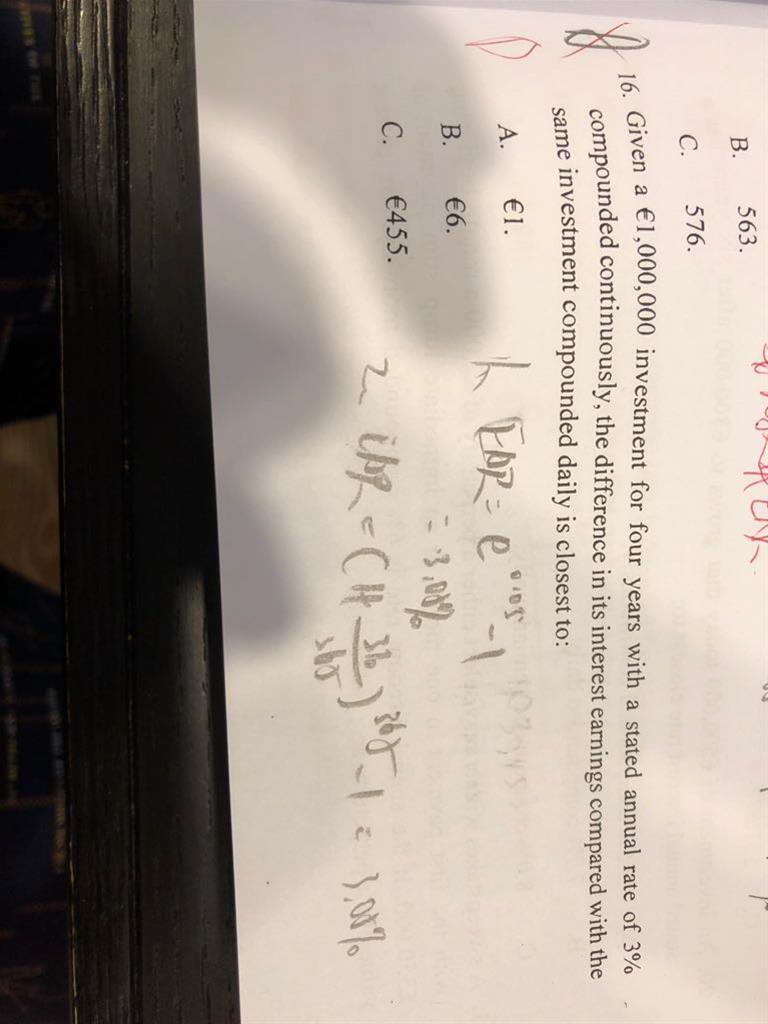 B. 563.
C. 576.
16. Given a €1,000,000 investment for four years with a stated annual rate of 3%
compounded continuously, the difference in its interest earnings compared with the
same investment compounded daily is closest to:
A. €1.
B. €6.
C. €455.
EAR = e^0.03 - 1
= 3.05%
2. EAR = (1+ 3% / 365)^365 - 1 = 3.05%